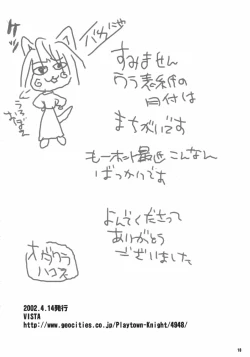 バカにゃ
ケッ
すみません
ウラ表紙の
日付は
まちがいです
もーホント最近こんなん
ばっかりです
よんでくださって
ありがとう
ございました
オダワラ
ハコネ
2002.4.14発行
VISTA
http://www.geocities.co.jp/Playtown-Knight/4948/